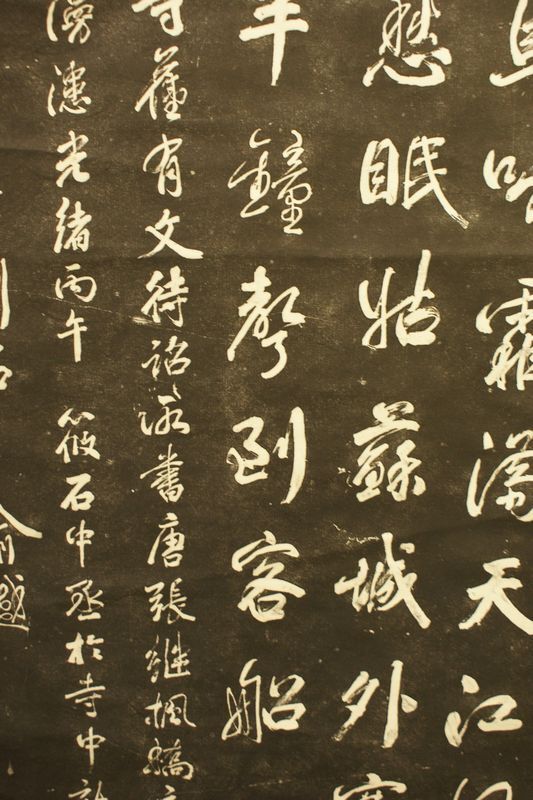 烏啼霜滿天江
愁眠姑蘇城外寒
半鐘聲到客船
寺舊有文待詔所書唐張繼楓橋
漫漶光緒丙午 筱石中丞於寺中新
俞樾